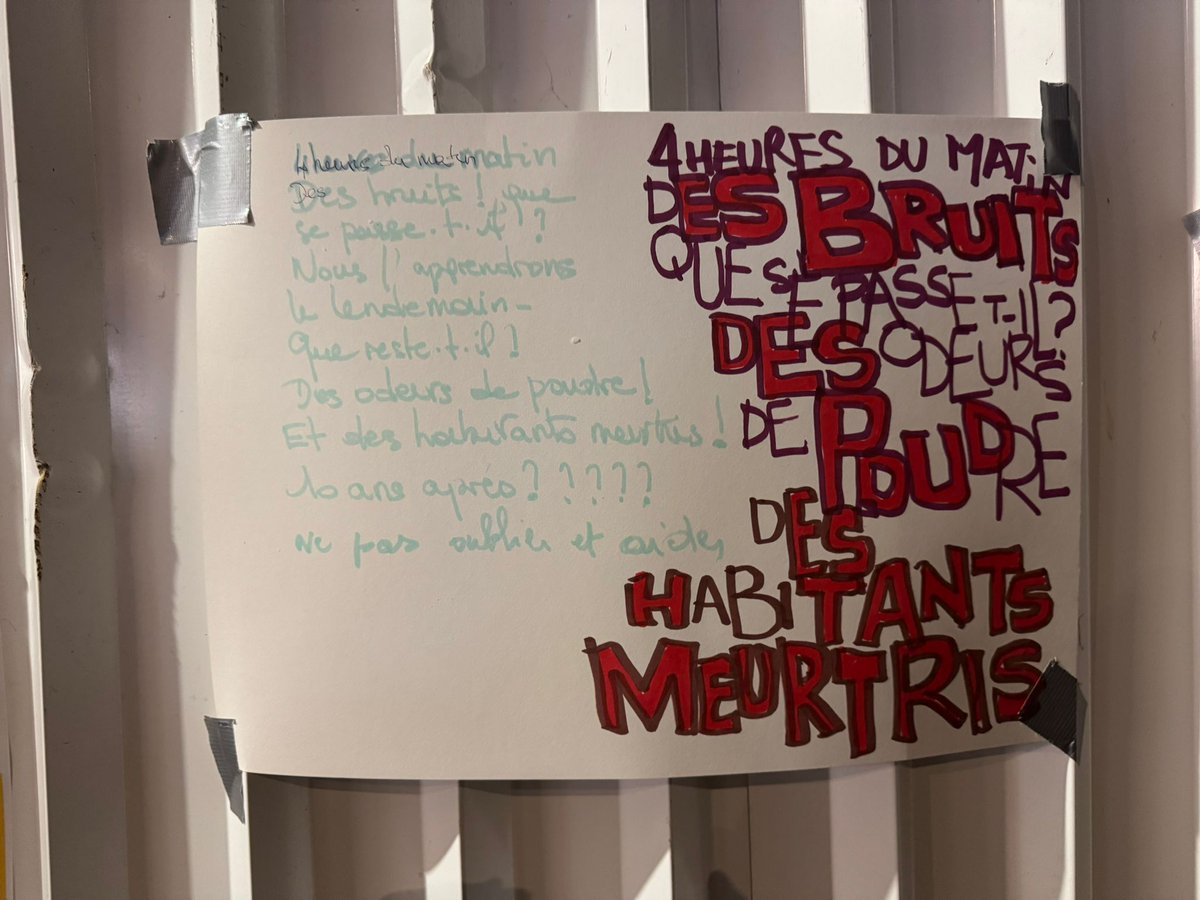 4 heures du matin
Des bruits ! que
se passe.t.il ??
Nous l'apprendrons
le lendemain -
Que reste.t.il !
Des odeurs de poudre !
Et des habitants meurtris !
10 ans après ? ? ? ? ?
Ne pas oublier et aider
4 HEURES DU MATIN
DES BRUITS
QUE SE PASSE T-IL ?
DES ODEURS
DE POUDRE
DES
HABITANTS
MEURTRIS